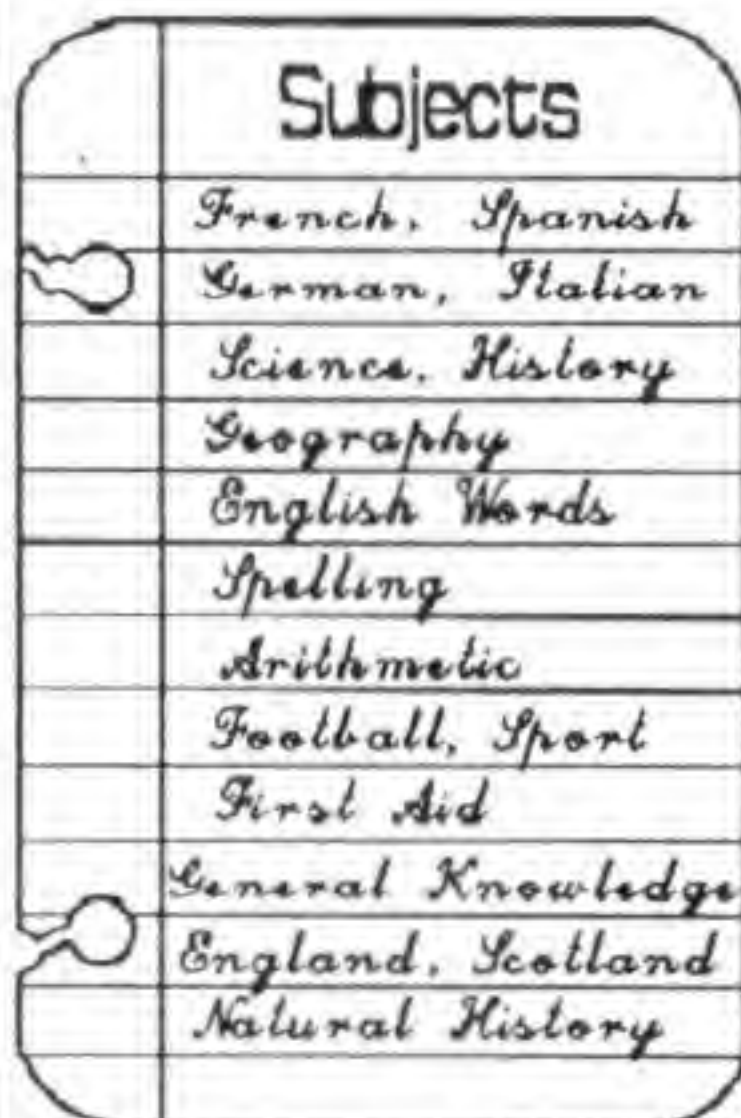 Subjects
French, Spanish
German, Italian
Science, History
Geography
English Words
Spelling
Arithmetic
Football, Sport
First Aid
General Knowledge
England, Scotland
Natural History